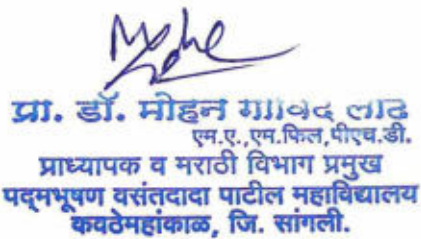 प्रा. डॉ. मोहन लाड
एम.ए.,एम.फिल,पीएच.डी.
प्राध्यापक व मराठी विभाग प्रमुख
पद्मभूषण वसंतदादा पाटील महाविद्यालय
कवठेमहांकाळ, जि. सांगली.